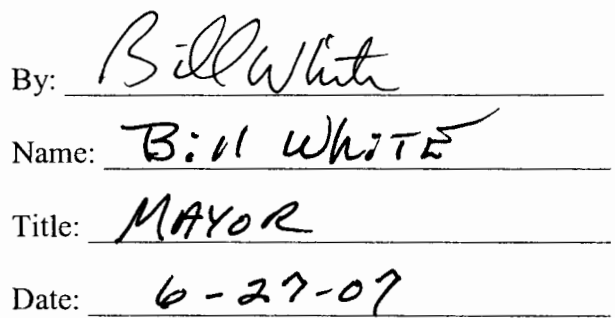 By: Bill White
Name: Bill WhiTE
Title: MAYOR
Date: 6-27-07